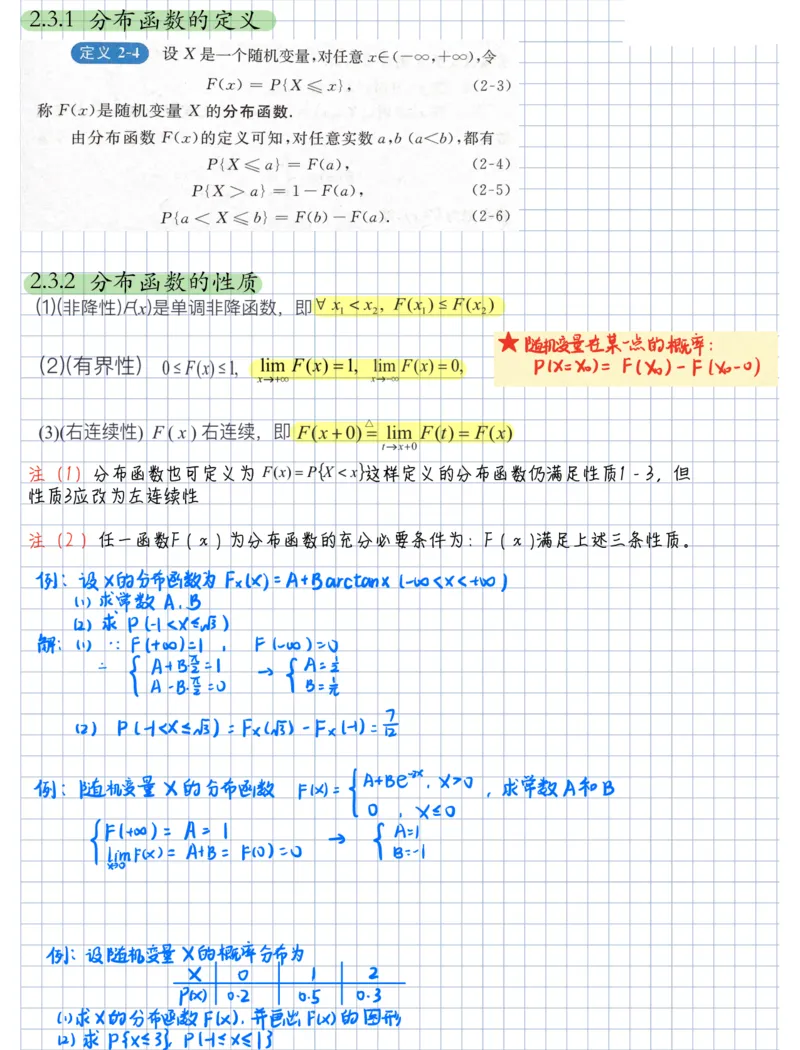 2.3.1 分布函数的定义
定义 2-4 设 X 是一个随机变量,对任意 x∈(−∞,+∞),令
F(x) = P{X ⩽ x}, (2-3)
称 F(x)是随机变量 X 的分布函数.
由分布函数 F(x)的定义可知,对任意实数 a,b (a<b),都有
P{X ⩽ a} = F(a), (2-4)
P{X > a} = 1 − F(a), (2-5)
P{a < X ⩽ b} = F(b) − F(a). (2-6)
2.3.2 分布函数的性质
(1)(非降性)F(x)是单调非降函数，即∀ x₁ < x₂, F(x₁) ≤ F(x₂)
★随机变量在某一点的概率:
P(X=X₀) = F(X₀) − F(X₀−0)
(2)(有界性) 0 ≤ F(x) ≤ 1, lim F(x) = 1, lim F(x) = 0,
x→+∞ x→−∞
(3)(右连续性) F ( x ) 右连续，即 F(x+0) ≜ lim F(t) = F(x)
t→x+0
注（1）分布函数也可定义为 F(x) = P{X < x}这样定义的分布函数仍满足性质1-3，但
性质3应改为左连续性
注（2）任一函数F(x)为分布函数的充分必要条件为：F(x)满足上述三条性质。
例：设X的分布函数为 Fx(x)=A+Barctanx (−∞<x<+∞)
(1) 求常数 A、B
(2) 求 P(−1<X≤√3)
解：(1) ∵ F(+∞)=1 , F(−∞)=0
∴ { A+B·π/2=1 → { A=1/2
A−B·π/2=0 B=1/π
(2) P(−1<X≤√3) = Fx(√3) − Fx(−1) = 7/12
例：随机变量 X 的分布函数 F(x)= { A+Be⁻²ˣ , X>0 , 求常数A和B
0 , X≤0
{ F(+∞) = A = 1 → { A=1
lim F(x) = A+B = F(0) = 0 B=−1
x→0
例：设随机变量 X的概率分布为
X 0 1 2
P(x) 0.2 0.5 0.3
(1)求X的分布函数F(x), 并画出F(x)的图形
(2) 求 P{X≤3}, P{−1≤X≤1}